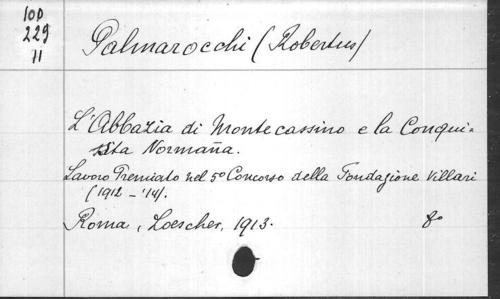 10D
229
11
Palmarocchi (Robertus)
L'Abbazia di Montecassino e la Conqui-
sta Normaña.
Lavoro Premiato nel 5º Concorso della Fondazione Villari
(1912-'14).
Roma, Loescher, 1913. 8º